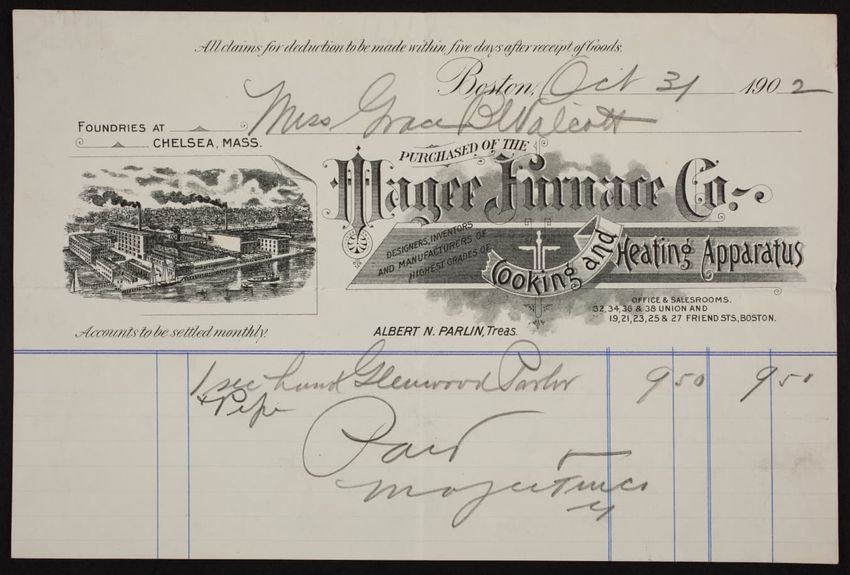 All claims for deduction to be made within five days after receipt of Goods.
Boston, Oct 31 1902
Miss Grace B Walcott
FOUNDRIES AT
CHELSEA, MASS.
PURCHASED OF THE
Magee Furnace Co.
DESIGNERS, INVENTORS
AND MANUFACTURERS OF
HIGHEST GRADES OF
Cooking and Heating Apparatus
OFFICE & SALESROOMS.
32, 34, 36 & 38 UNION AND
19, 21, 23, 25 & 27 FRIEND STS., BOSTON.
Accounts to be settled monthly.
ALBERT N. PARLIN, Treas.
1 sec hand Glenwood Parlor 9 50 9 50
+ Pipe
Paid
Magee Furnace